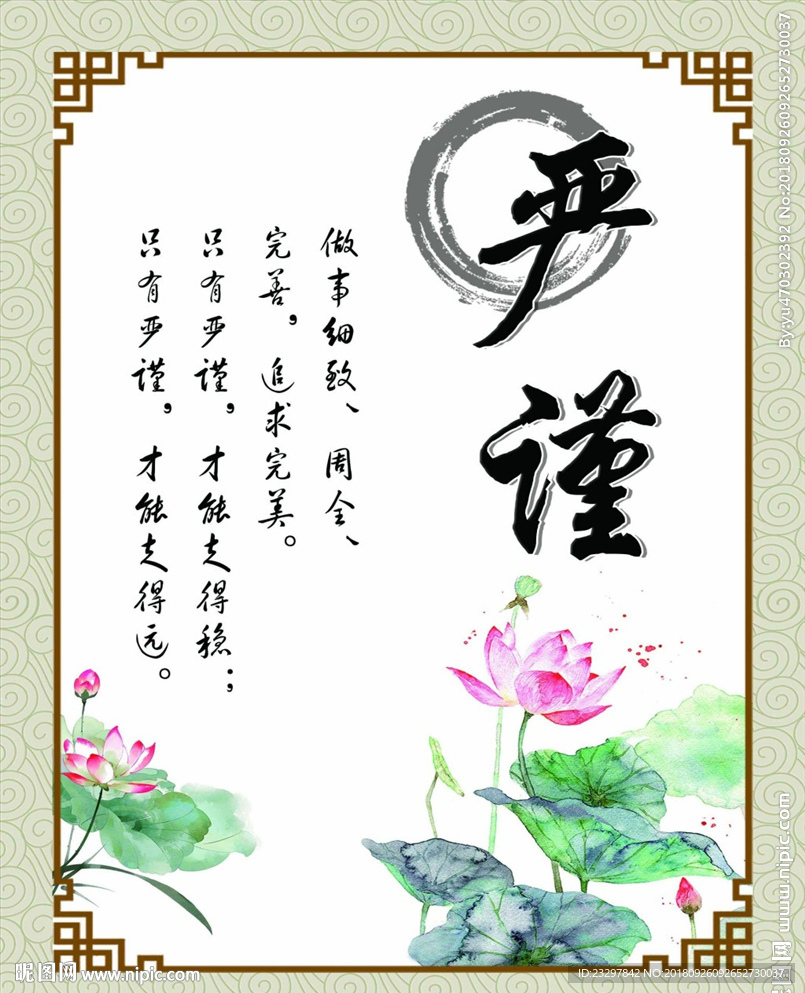 严谨
做事细致、周全、
完善，追求完美。
只有严谨，才能走得稳；
只有严谨，才能走得远。
By:yu470302392 No:20180926092652730037
www.nipic.com
昵图网
昵图网 www.nipic.com
ID:23297842 NO:20180926092652730037